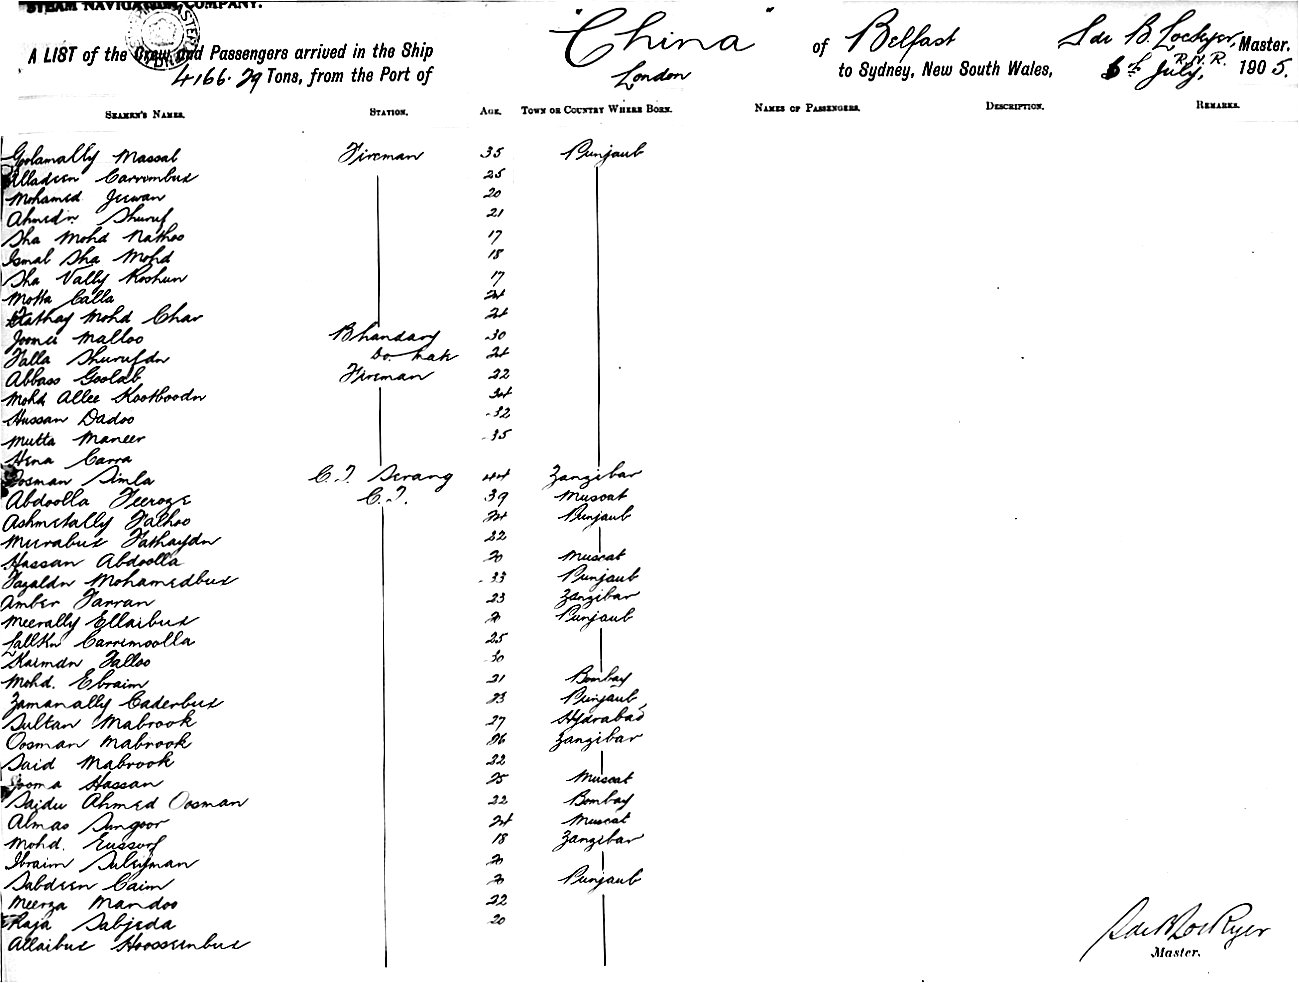 STEAM NAVIGATION COMPANY.
A LIST of the Crew and Passengers arrived in the Ship "China" of Belfast Lde B. Lockyer, R.N.R. Master.
4166.29 Tons, from the Port of London to Sydney, New South Wales, 6th July, 1905.
SEAMEN'S NAMES. STATION. AGE. TOWN OR COUNTRY WHERE BORN. NAMES OF PASSENGERS. DESCRIPTION. REMARKS.
Goolamally Massal Fireman 35 Punjaub
Alladeen Carrombux 25
Mohamed Jeewan 20
Ahmedn Shuruf 21
Sha Mohd Nathoo 17
Ismal Sha Mohd 18
Sha Vally Roshun 17
Motta Calla 24
Fathay Mohd Char 24
Jooma Malloo Bhandary 30
Falla Shurufdn Do. Mate 24
Abbass Goolab Fireman 22
Mohd Allee Kootboodn 34
Hussan Dadoo 32
Mutta Maneer 35
Hena Carra
Oosman Simla C.T. Serang 44 Zanzibar
Abdoolla Feeroze C.T. 39 Muscat
Ashmetally Falhoo 24 Punjaub
Meerabux Fathaydn 22
Hassan Abdoolla 20 Muscat
Fazaldn Mohamedbux 33 Punjaub
Amber Farran 23 Zanzibar
Meerally Ellaibux 21 Punjaub
Lallkn Carrimoolla 25
Karmdn Falloo 30
Mohd. Ebraim 21 Bombay
Zamanally Caderbux 23 Punjaub
Sultan Mabrook 27 Hydrabad
Oosman Mabrook 26 Zanzibar
Said Mabrook 22
Jooma Hassan 25 Muscat
Saidu Ahmed Oosman 22 Bombay
Almas Sungoor 24 Muscat
Mohd. Eussorf 18 Zanzibar
Ibraim Suleyman 20
Sabdeen Caim 20 Punjaub
Meerza Mandoo 22
Raja Sabjeda 20
Allaibux Hoossenbux
Lde B Lockyer
Master.